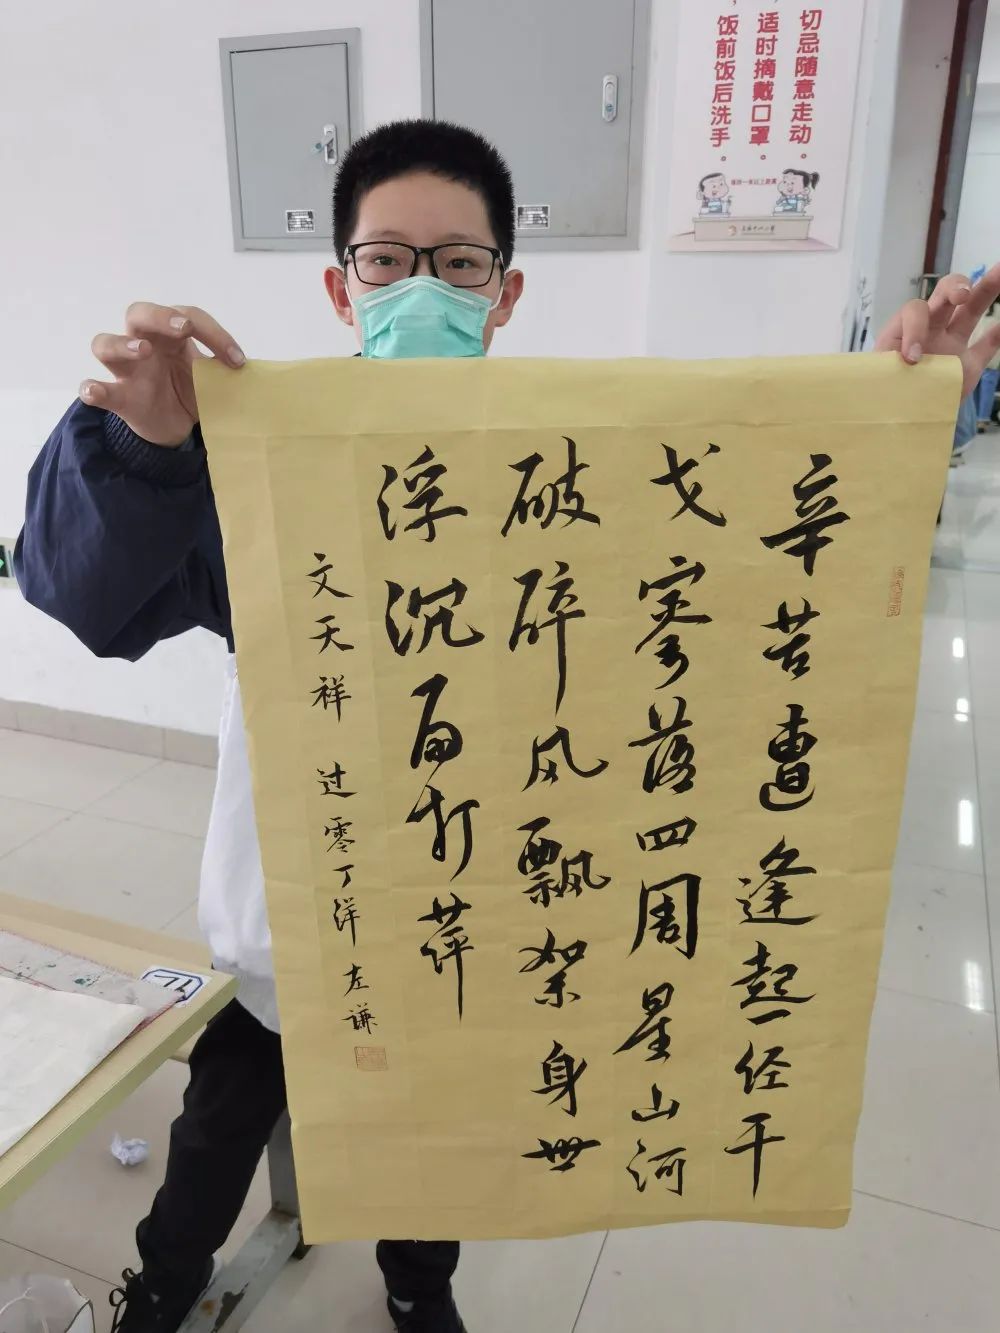 切忌随意走动。
，适时摘戴口罩。
，饭前饭后洗手。
保持一米以上距离
辛苦遭逢起一经干
戈寥落四周星山河
破碎风飘絮身世
浮沉雨打萍
文天祥 过零丁洋 左谦